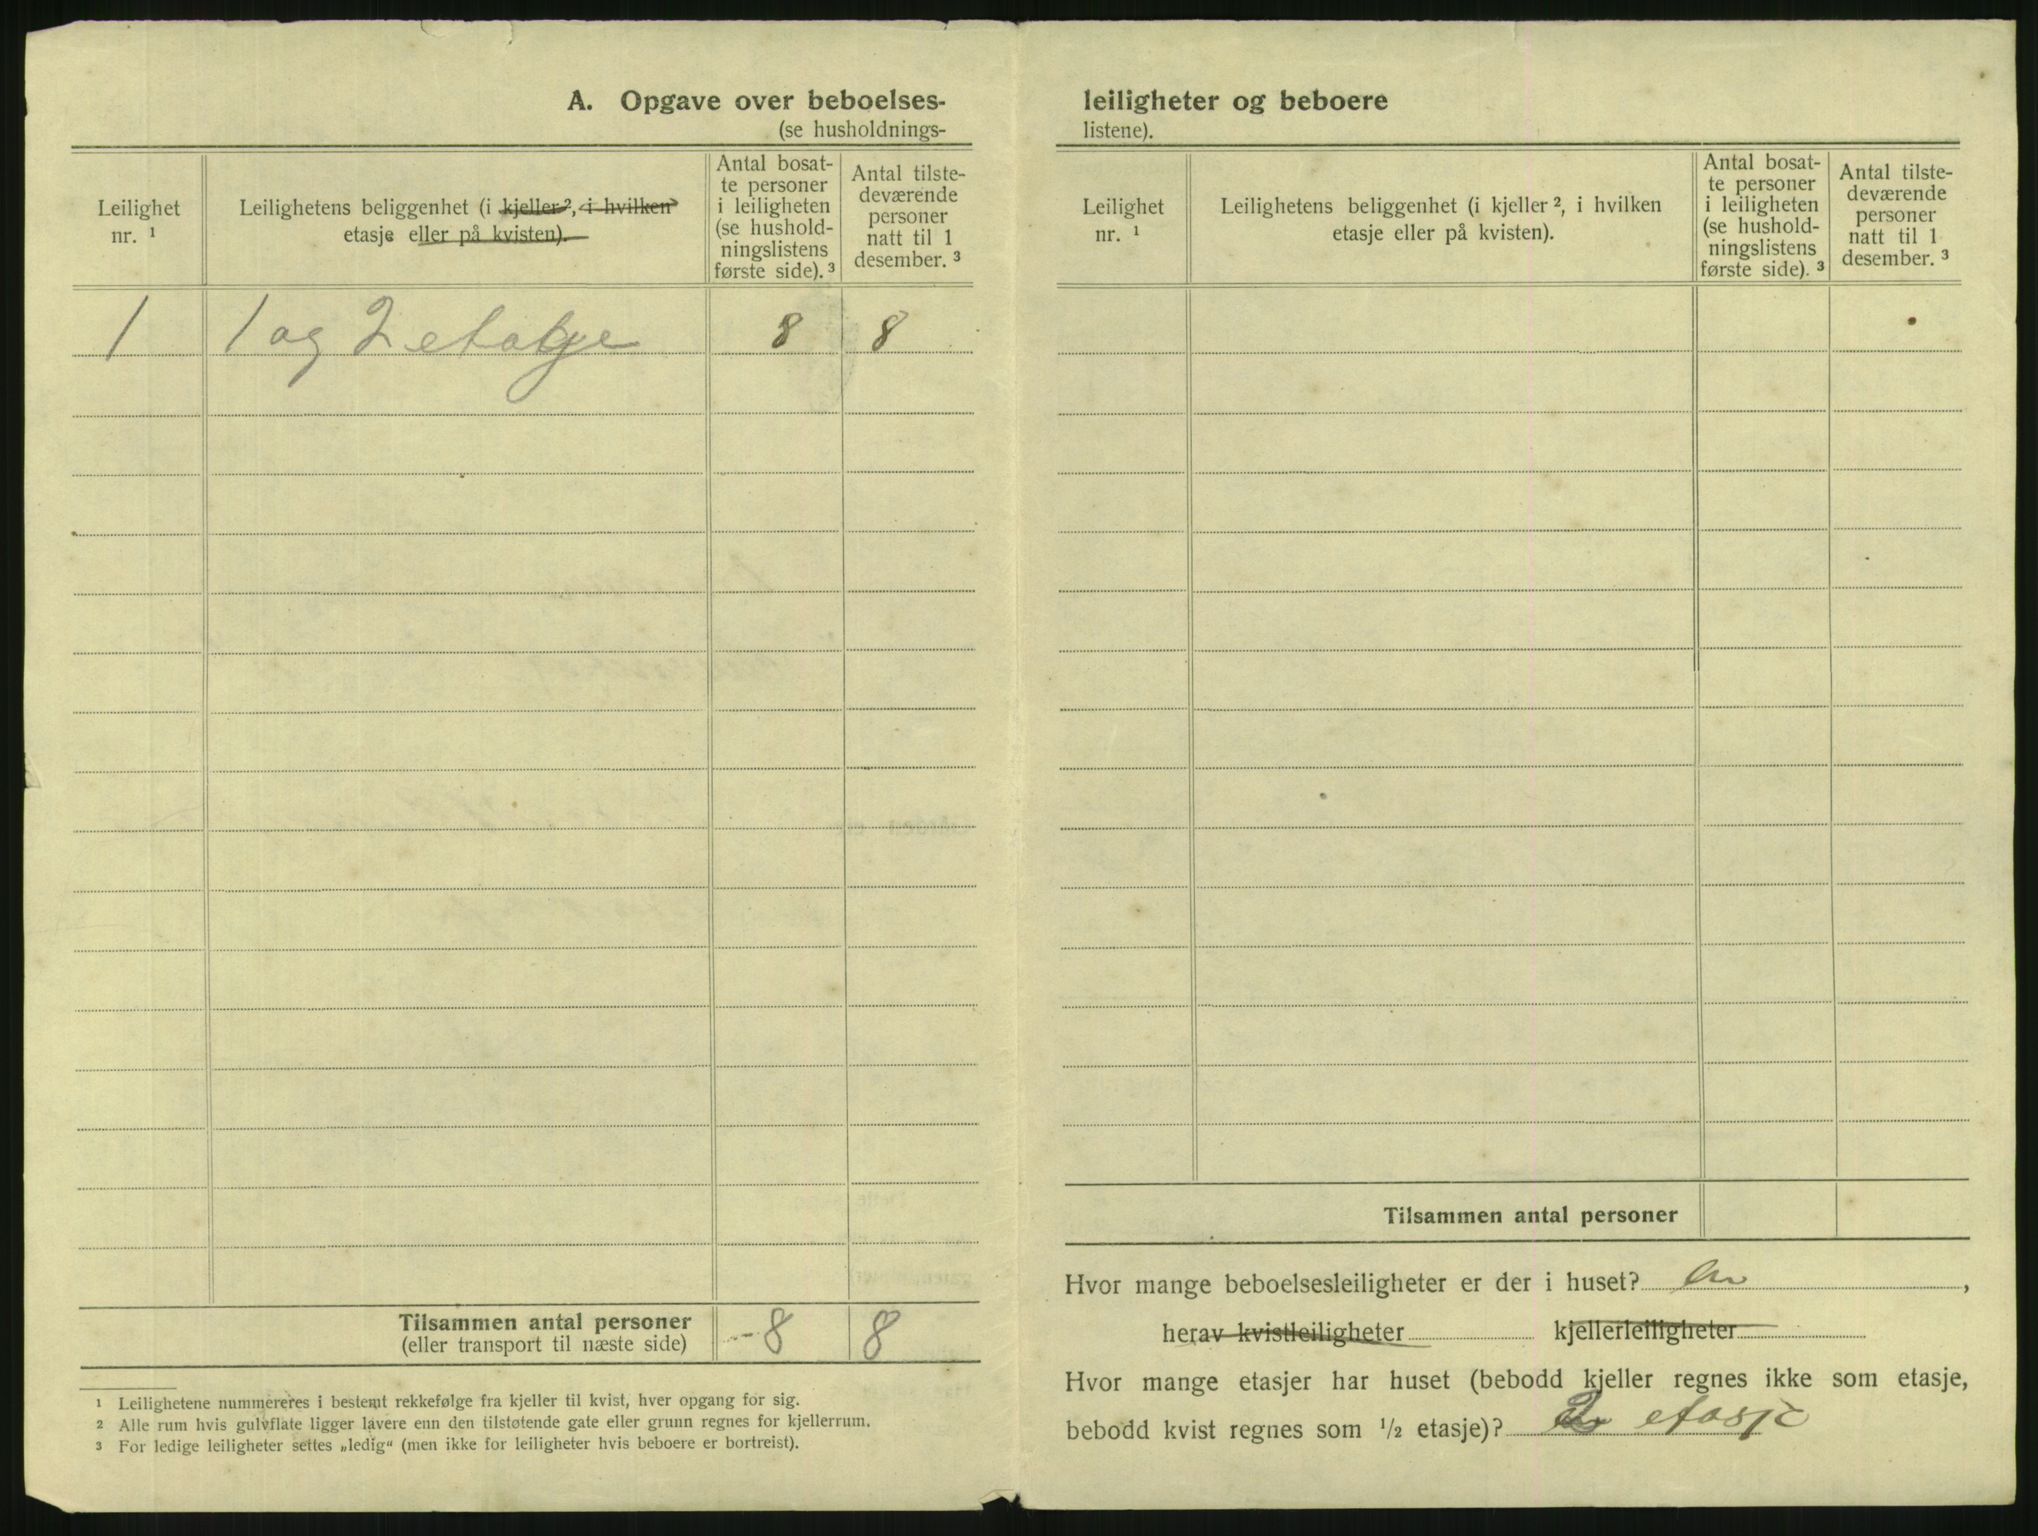 A. Opgave over beboelses-
(se husholdnings-
Leilighet nr. ¹
Leilighetens beliggenhet (i kjeller ², i hvilken
etasje eller på kvisten).
Antal bosat-
te personer
i leiligheten
(se hushold-
ningslistens
første side). ³
Antal tilste-
deværende
personer
natt til 1
desember. ³
1 1 og 2 etatge 8 8
Tilsammen antal personer 8 8
(eller transport til næste side)
¹ Leilighetene nummereres i bestemt rekkefølge fra kjeller til kvist, hver opgang for sig.
² Alle rum hvis gulvflate ligger lavere enn den tilstøtende gate eller grunn regnes for kjellerrum.
³ For ledige leiligheter settes „ledig“ (men ikke for leiligheter hvis beboere er bortreist).
leiligheter og beboere
listene).
Leilighet nr. ¹
Leilighetens beliggenhet (i kjeller ², i hvilken
etasje eller på kvisten).
Antal bosat-
te personer
i leiligheten
(se hushold-
ningslistens
første side). ³
Antal tilste-
deværende
personer
natt til 1
desember. ³
Tilsammen antal personer
Hvor mange beboelsesleiligheter er der i huset? en ,
herav kvistleiligheter kjellerleiligheter
Hvor mange etasjer har huset (bebodd kjeller regnes ikke som etasje,
bebodd kvist regnes som ½ etasje)? 2 etasje